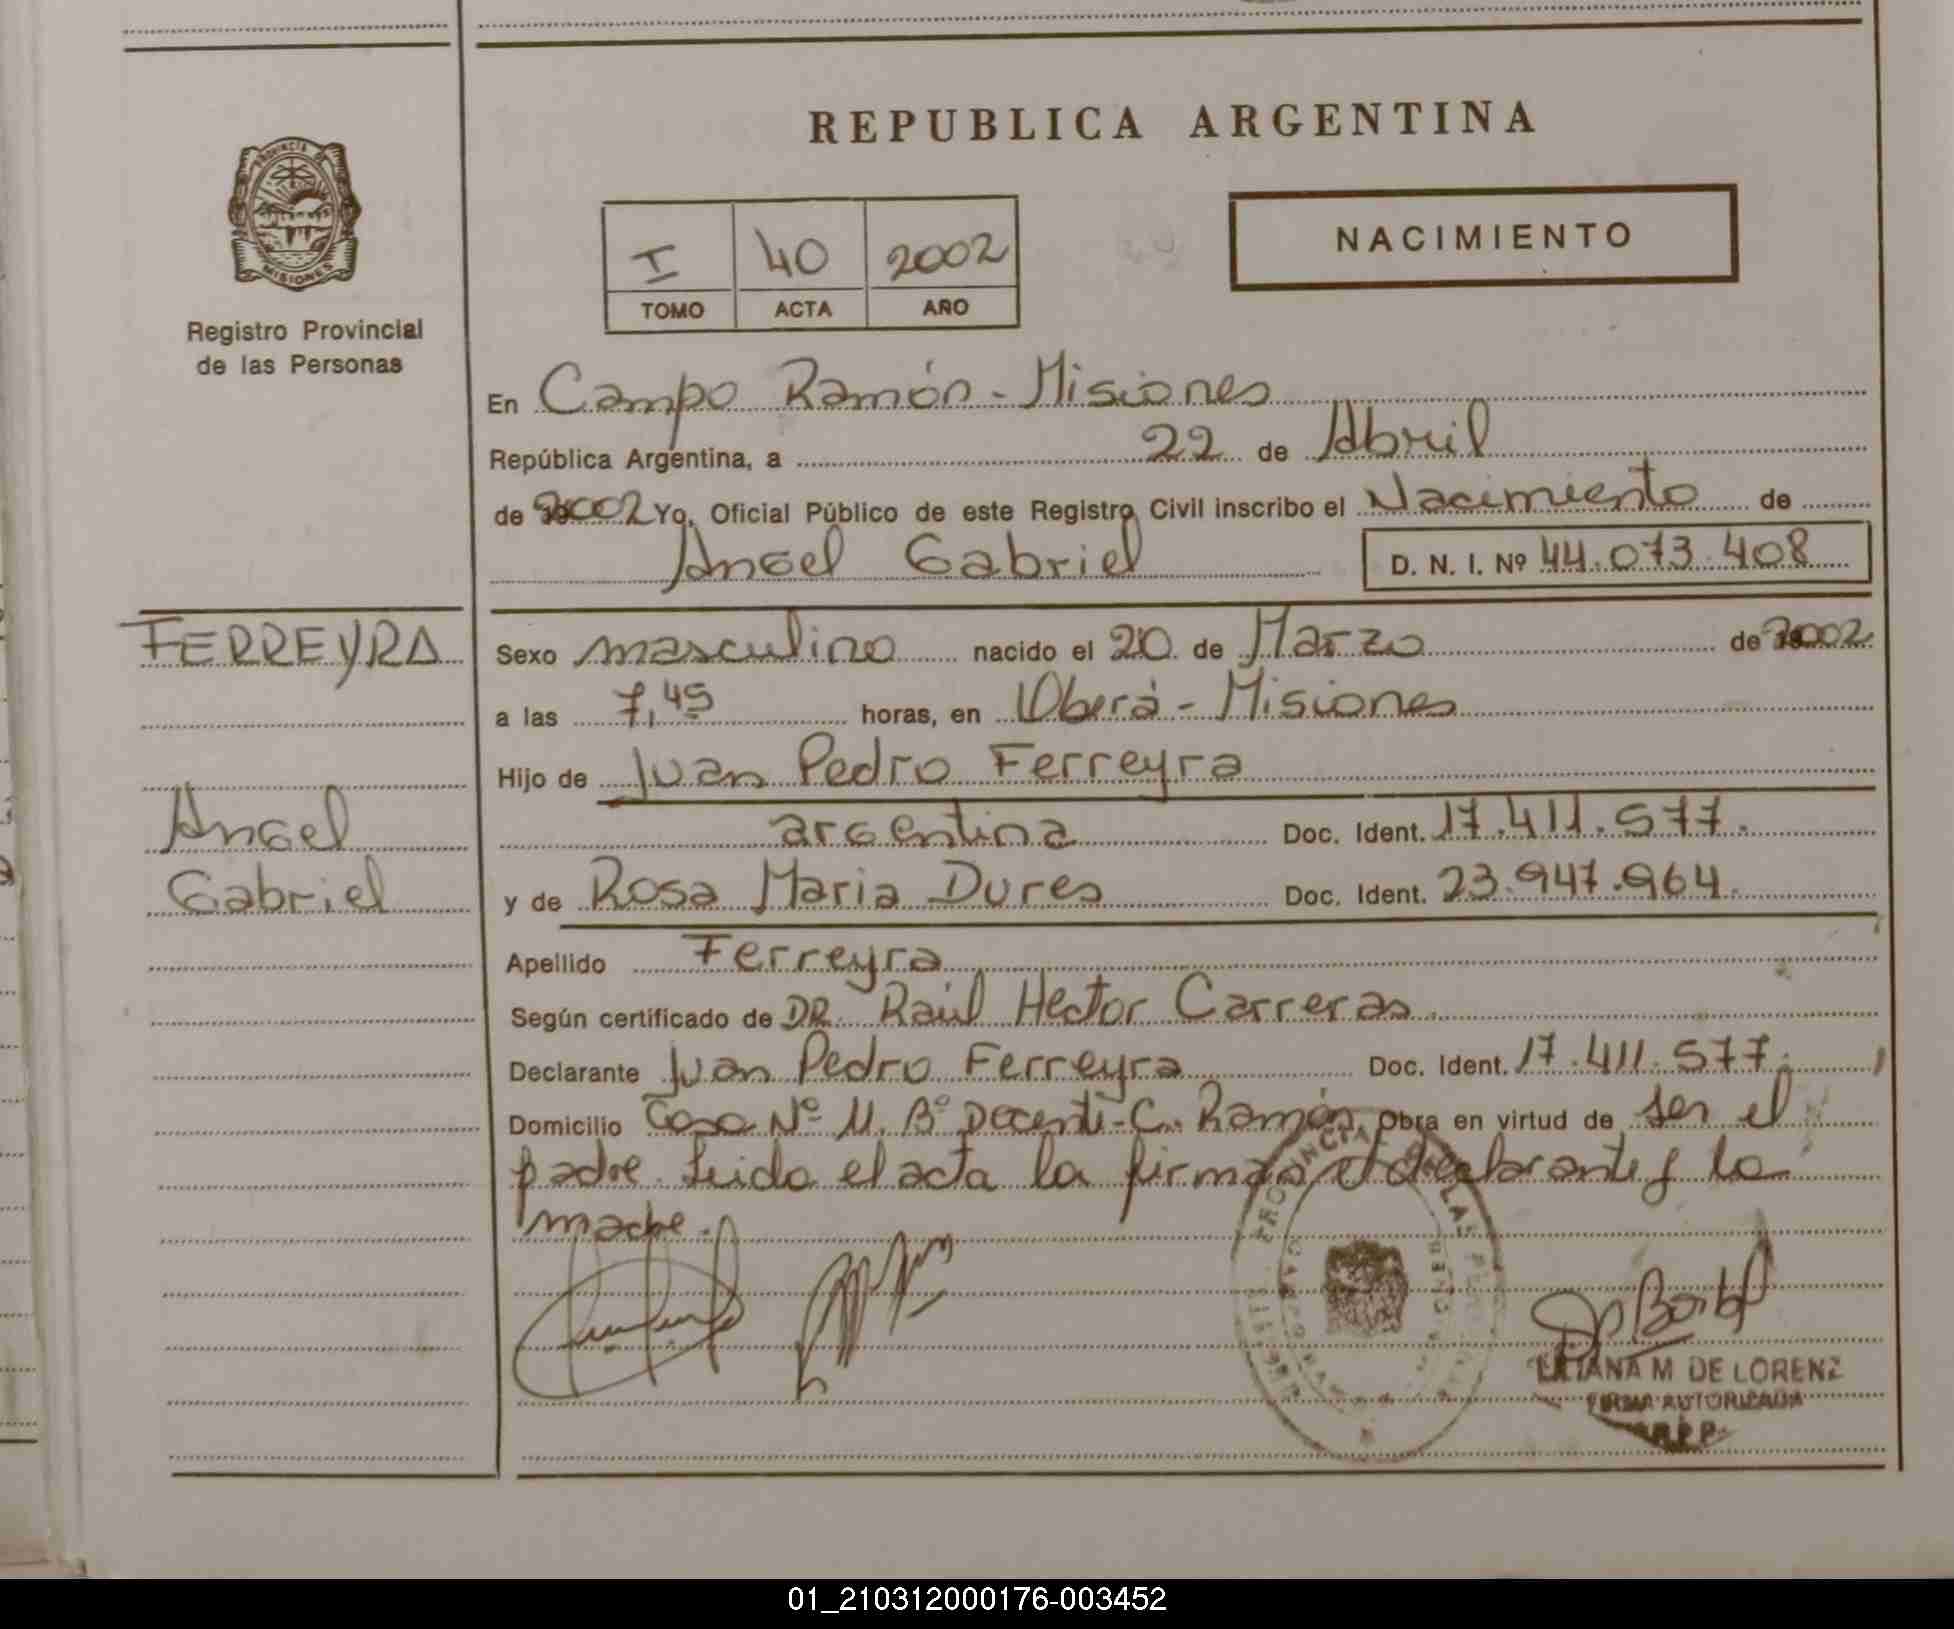 REPUBLICA ARGENTINA
PROVINCIA DE
MISIONES
Registro Provincial
de las Personas
I 40 2002
TOMO ACTA AÑO
NACIMIENTO
En Campo Ramón - Misiones
República Argentina, a 22 de Abril
de 2002 Yo, Oficial Público de este Registro Civil inscribo el Nacimiento de
Angel Gabriel D. N. I. Nº 44.073.408
FERREYRA
Angel
Gabriel
Sexo masculino nacido el 20 de Marzo de 2002
a las 7,45 horas, en Oberá - Misiones
Hijo de Juan Pedro Ferreyra
argentina Doc. Ident. 17.411.577.
y de Rosa Maria Dures Doc. Ident. 23.947.964.
Apellido Ferreyra
Según certificado de DR. Raúl Hector Carreras.
Declarante Juan Pedro Ferreyra Doc. Ident. 17.411.577.
Domicilio Casa Nº 11. Bº Docente - C. Ramón Obra en virtud de ser el
padre. Leida el acta la firman el declarante y la
madre.
LILIANA M DE LORENZ
FIRMA AUTORIZADA
R.P.P.
01_210312000176-003452